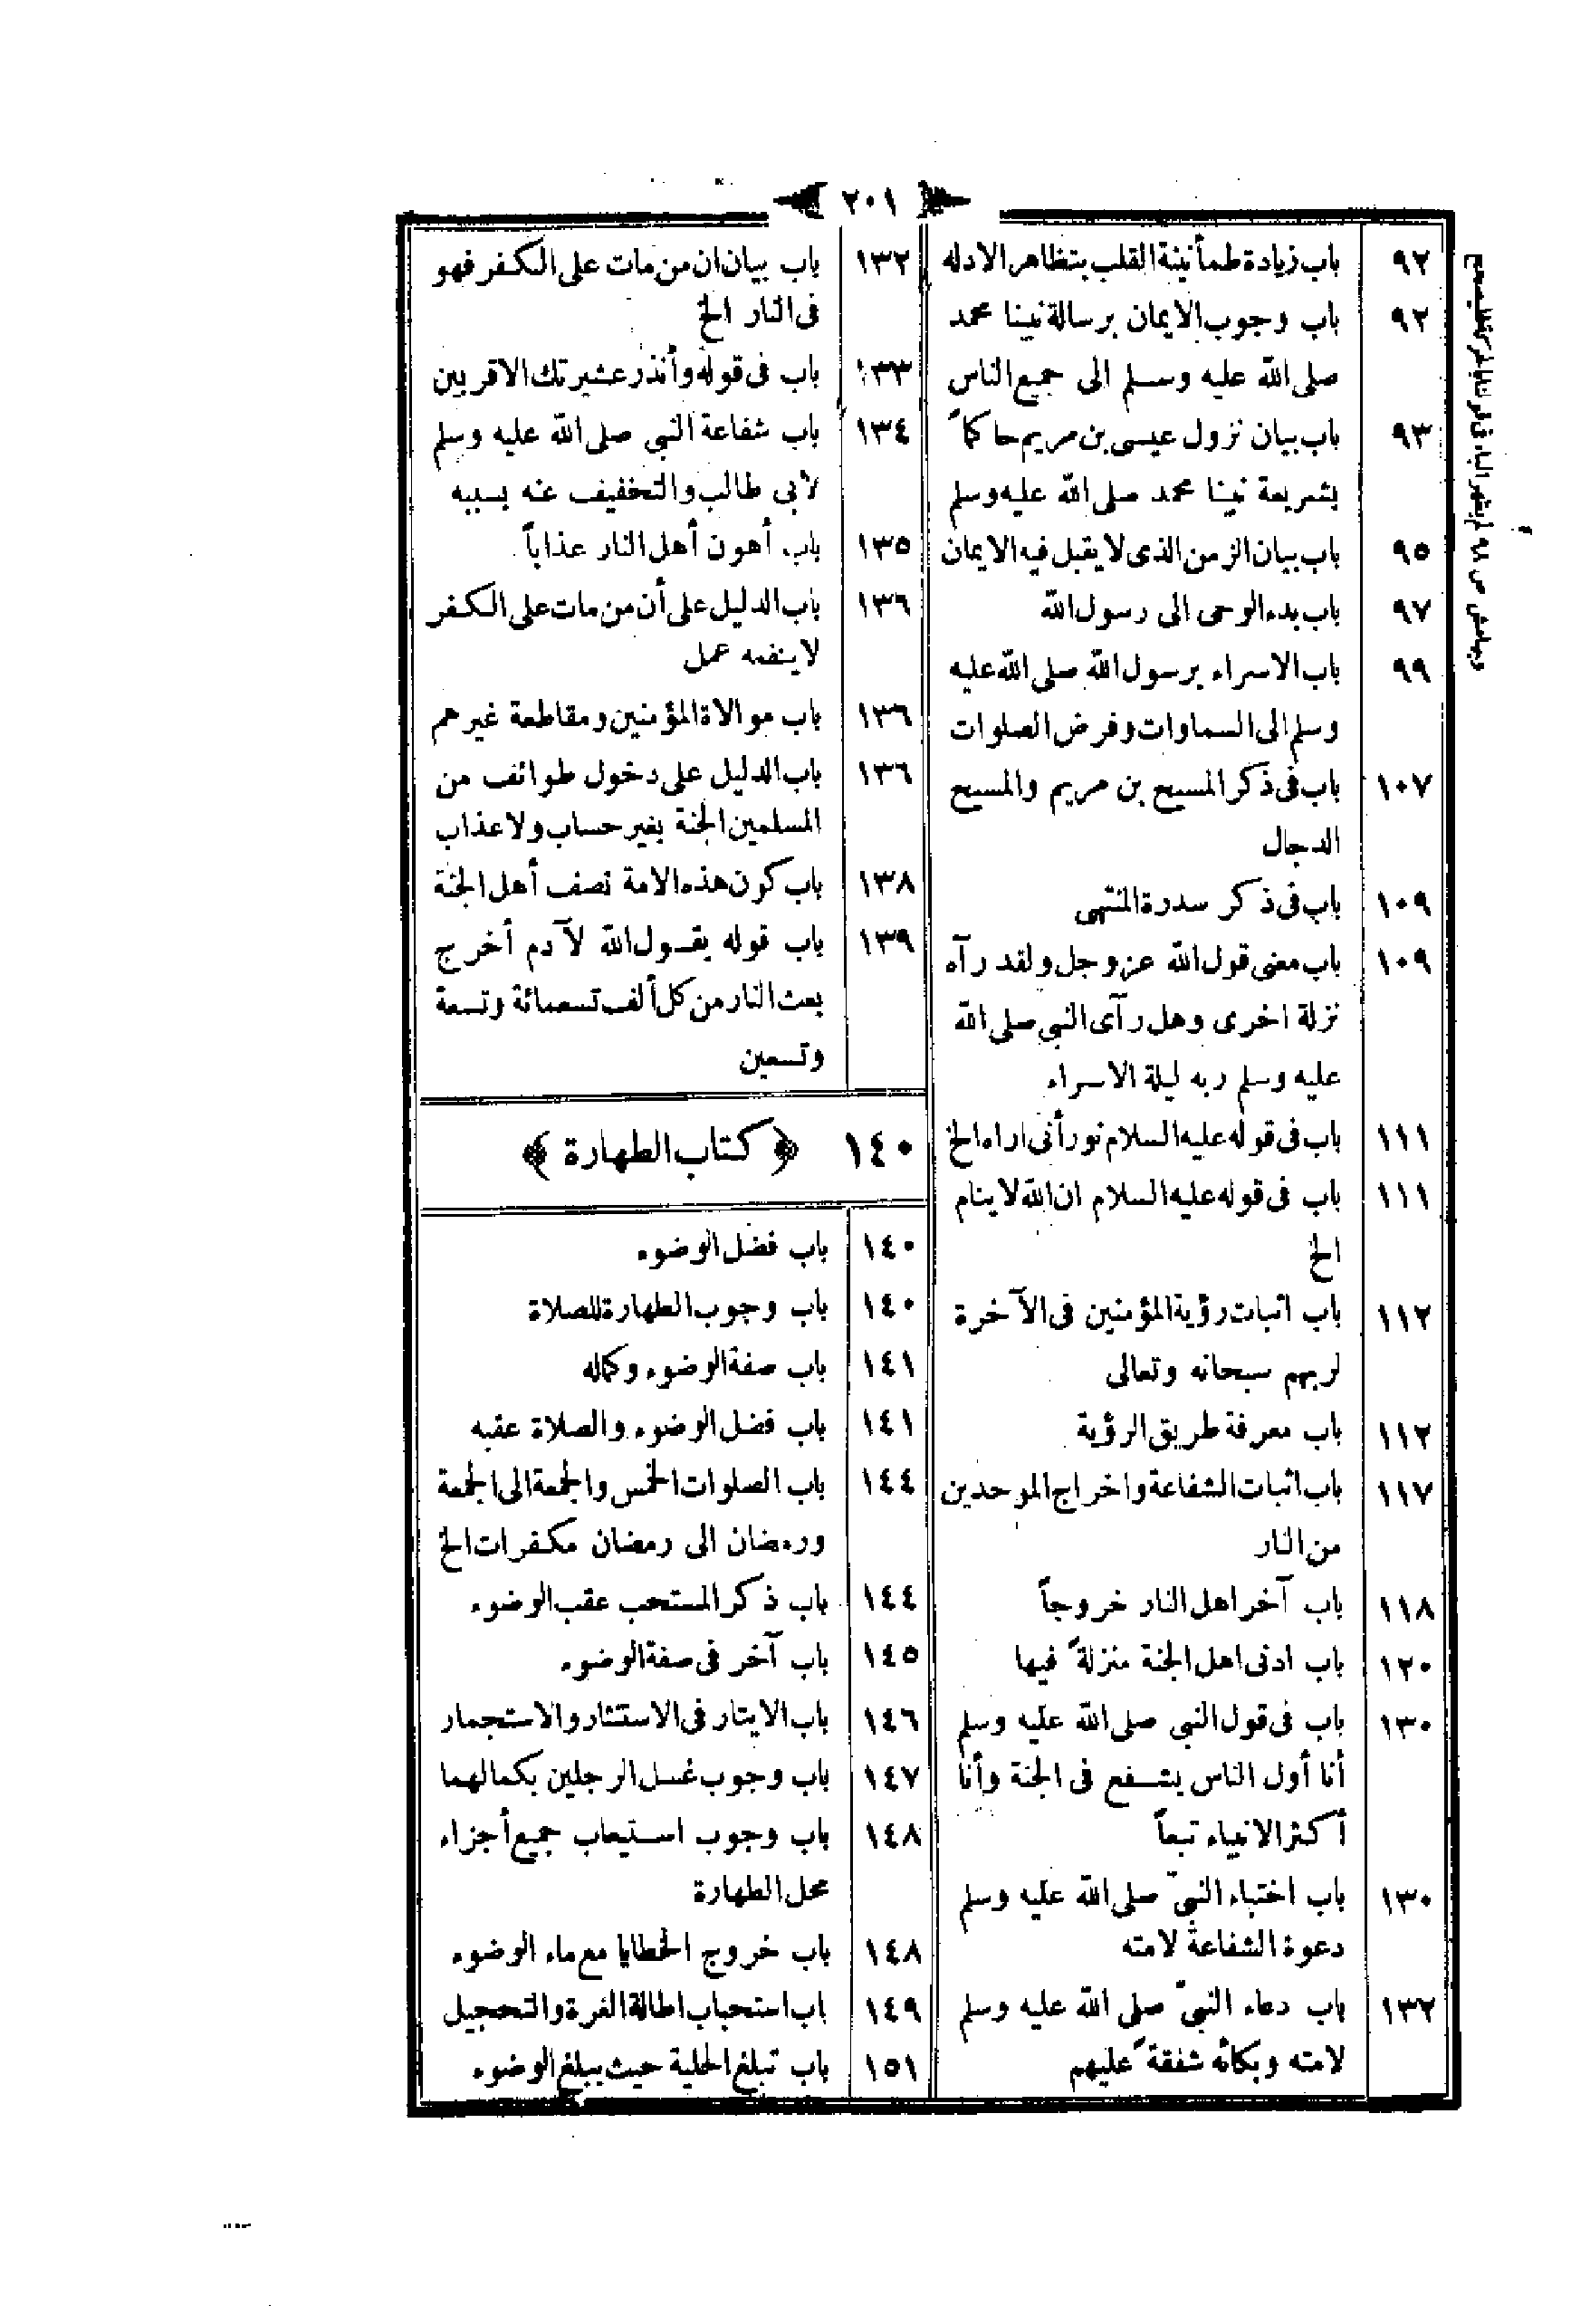 ٢٠١
٩٢ باب زيادة طمأنينة القلب بتظاهر الادله
٩٢ باب وجوب الايمان برسالة نبينا محمد
صلى الله عليه وسلم الى جميع الناس
٩٣ باب بيان نزول عيسى بن مريم حاكماً
بشريعة نبينا محمد صلى الله عليه وسلم
٩٥ باب بيان الزمن الذى لا يقبل فيه الايمان
٩٧ باب بدء الوحى الى رسول الله
٩٩ باب الاسراء برسول الله صلى الله عليه
وسلم الى السماوات وفرض الصلوات
١٠٧ باب فى ذكر المسيح بن مريم والمسيح
الدجال
١٠٩ باب فى ذكر سدرة المنتهى
١٠٩ باب معنى قول الله عز وجل ولقد رآه
نزلة اخرى وهل رآى النبي صلى الله
عليه وسلم ربه ليلة الاسراء
١١١ باب فى قوله عليه السلام نور أنى اراه الخ
١١١ باب فى قوله عليه السلام ان الله لا ينام
الخ
١١٢ باب اثبات رؤية المؤمنين فى الآخرة
لربهم سبحانه وتعالى
١١٢ باب معرفة طريق الرؤية
١١٧ باب اثبات الشفاعة واخراج الموحدين
من النار
١١٨ باب آخر اهل النار خروجاً
١٢٠ باب ادنى اهل الجنة منزلةً فيها
١٣٠ باب فى قول النبى صلى الله عليه وسلم
أنا أول الناس يشفع فى الجنة وأنا
أكثر الانبياء تبعاً
١٣٠ باب اختباء النبىّ صلى الله عليه وسلم
دعوة الشفاعة لامته
١٣٢ باب دعاء النبىّ صلى الله عليه وسلم
لامته وبكائه شفقةً عليهم
١٣٢ باب بيان ان من مات على الكفر فهو
فى النار الخ
١٣٣ باب فى قوله وأنذر عشيرتك الاقربين
١٣٤ باب شفاعة النبي صلى الله عليه وسلم
لابى طالب والتخفيف عنه بسببه
١٣٥ باب أهون أهل النار عذاباً
١٣٦ باب الدليل على أن من مات على الكفر
لا ينفعه عمل
١٣٦ باب موالاة المؤمنين ومقاطعة غيرهم
١٣٦ باب الدليل على دخول طوائف من
المسلمين الجنة بغير حساب ولا عذاب
١٣٨ باب كون هذه الامة نصف أهل الجنة
١٣٩ باب قوله يقول الله لآدم أخرج
بعث النار من كل ألف تسعمائة وتسعة
وتسعين
١٤٠ ﴿ كتاب الطهارة ﴾
١٤٠ باب فضل الوضوء
١٤٠ باب وجوب الطهارة للصلاة
١٤١ باب صفة الوضوء وكماله
١٤١ باب فضل الوضوء والصلاة عقبه
١٤٤ باب الصلوات الخمس والجمعة الى الجمعة
ورمضان الى رمضان مكفرات الخ
١٤٤ باب ذكر المستحب عقب الوضوء
١٤٥ باب آخر فى صفة الوضوء
١٤٦ باب الايتار فى الاستنثار والاستجمار
١٤٧ باب وجوب غسل الرجلين بكمالهما
١٤٨ باب وجوب استيعاب جميع أجزاء
محل الطهارة
١٤٨ باب خروج الخطايا مع ماء الوضوء
١٤٩ باب استحباب اطالة الغرة والتحجيل
١٥١ باب تبلغ الحلية حيث يبلغ الوضوء
وبهامش ص ٩٨ لم يظهر الباء فى قولنا